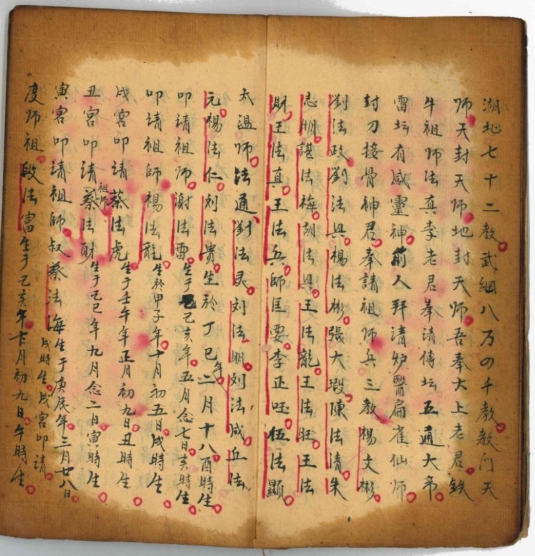 湖北七十二教武緺八万四千教教门天
师天封天师地封天师吾奉大上老君鉄
牛祖师法真李老君奉清傳坛五通大帝
雷坛有感靈神前人拜请妒醫扁雀仙师
封刀接骨神君奉請祖师兵三教楊文彬
刘法政刘法兵楊法彬張大 陳法清朱
志明諶法梅胡法興王法龍王法旺王法
財王法真王法兵師匡要李正旺伍法顯
太溫师法通刘法灵刘法明刘法咸丘法
元楊法仁刘法貴生於丁巳年二月十八酉時生
叩請祖师謝法雷生于己亥年五月念七日亥時生
叩請祖師楊法龍生於甲子年十月初五日戌時生
戌宫叩請蔡法虎生于壬午年正月初九日丑時生
丑宫叩请祖师蔡法財生于己巳年九月念二日寅時生
寅宫叩請祖師叔蔡法海生于庚辰年三月廿八日
戌時生戌宫叩请
度师祖 法富生于己亥年十月初九日午時生